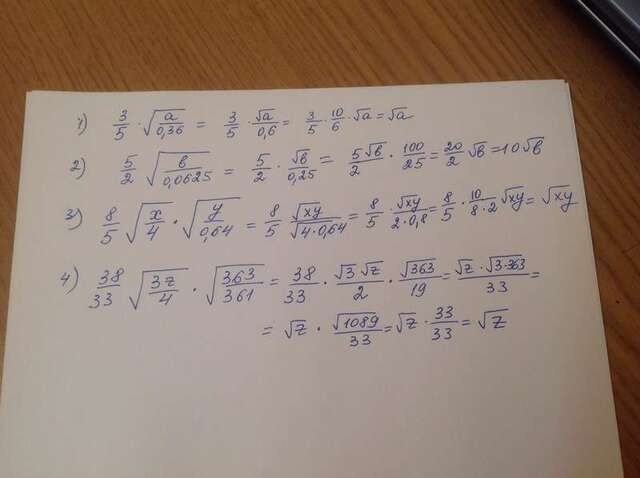 1) 3/5 · √(a/0,36) = 3/5 · √a/0,6 = 3/5 · 10/6 · √a = √a
2) 5/2 √(в/0,0625) = 5/2 · √в/0,25 = 5√в/2 · 100/25 = 20/2 √в = 10√в
3) 8/5 √(x/4) · √(y/0,64) = 8/5 √(xy)/√(4·0,64) = 8/5 · √(xy)/(2·0,8) = 8/5 · 10/(8·2) √(xy) = √(xy)
4) 38/33 √(3z/4) · √(363/361) = 38/33 · √3 √z/2 · √363/19 = √z · √(3·363)/33 =
= √z · √1089/33 = √z · 33/33 = √z